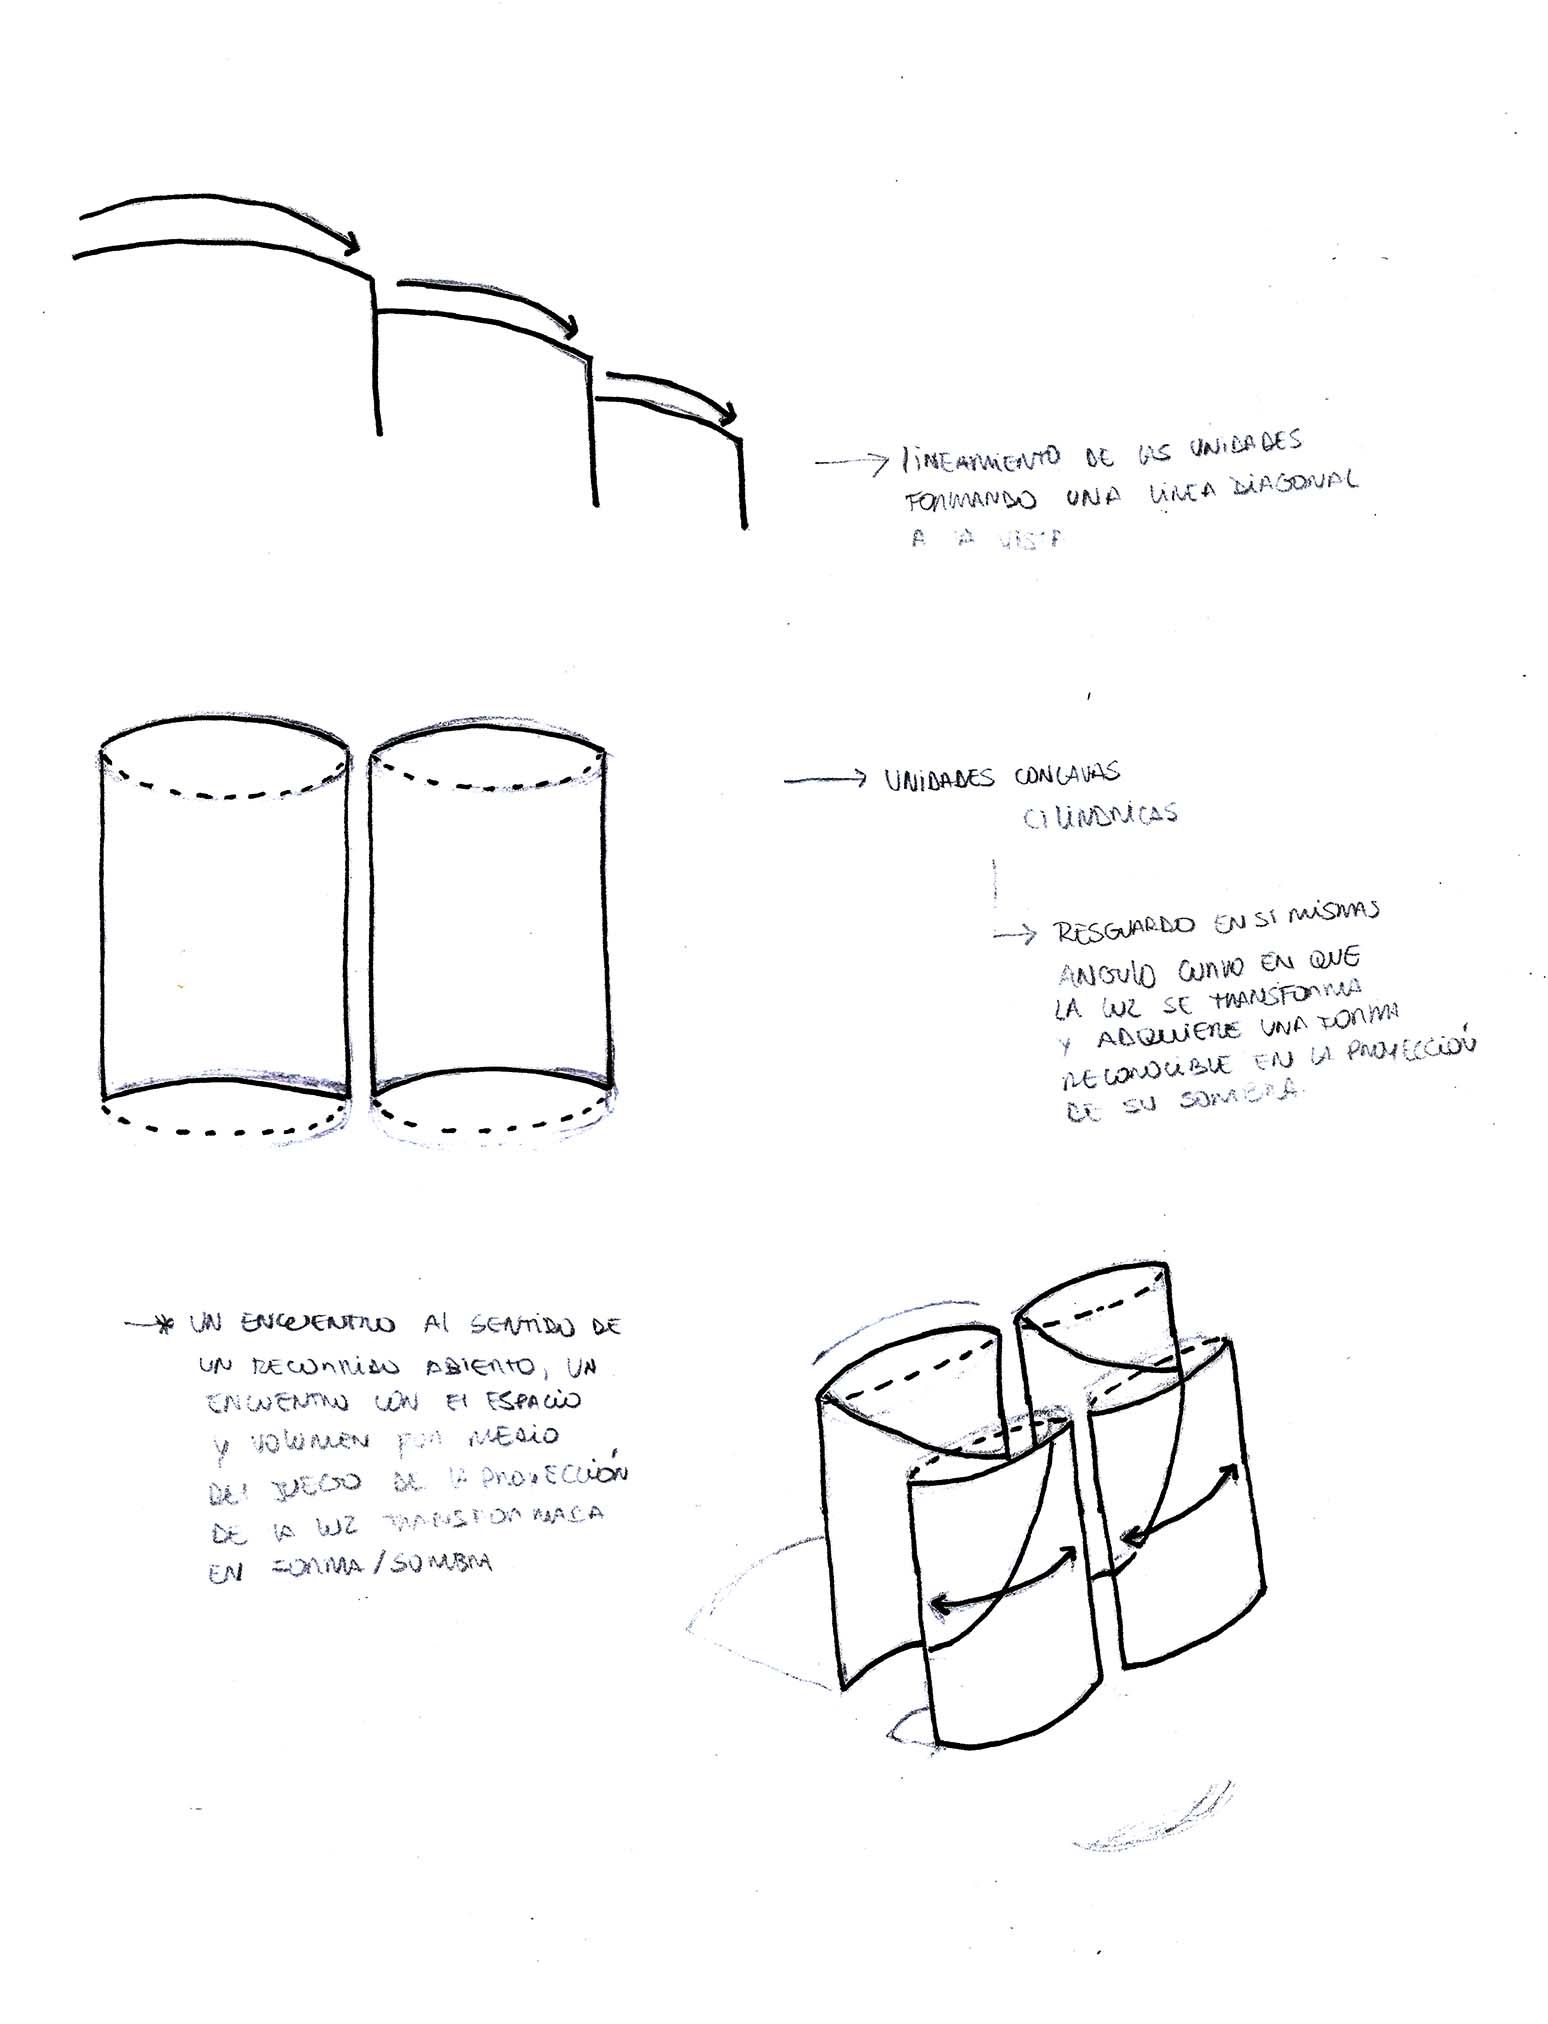 → lINEAMIENTO DE LAS UNIDADES
FORMANDO UNA LINEA DIAGONAL
A LA VISTA
→ UNIDADES CONCAVAS
CILINDRICAS
→ RESGUARDO EN SI MISMAS
ANGULO CURVO EN QUE
LA LUZ SE TRANSFORMA
Y ADQUIERE UNA FORMA
RECONOCIBLE EN LA PROYECCIÓN
DE SU SOMBRA.
→* UN ENCUENTRO Al SENTIDO DE
UN RECORRIDO ABIERTO, UN
ENCUENTRO CON El ESPACIO
Y VOLUMEN POR MEDIO
DEl JUEGO DE LA PROYECCIÓN
DE LA LUZ TRANSFORMADA
EN FORMA/SOMBRA